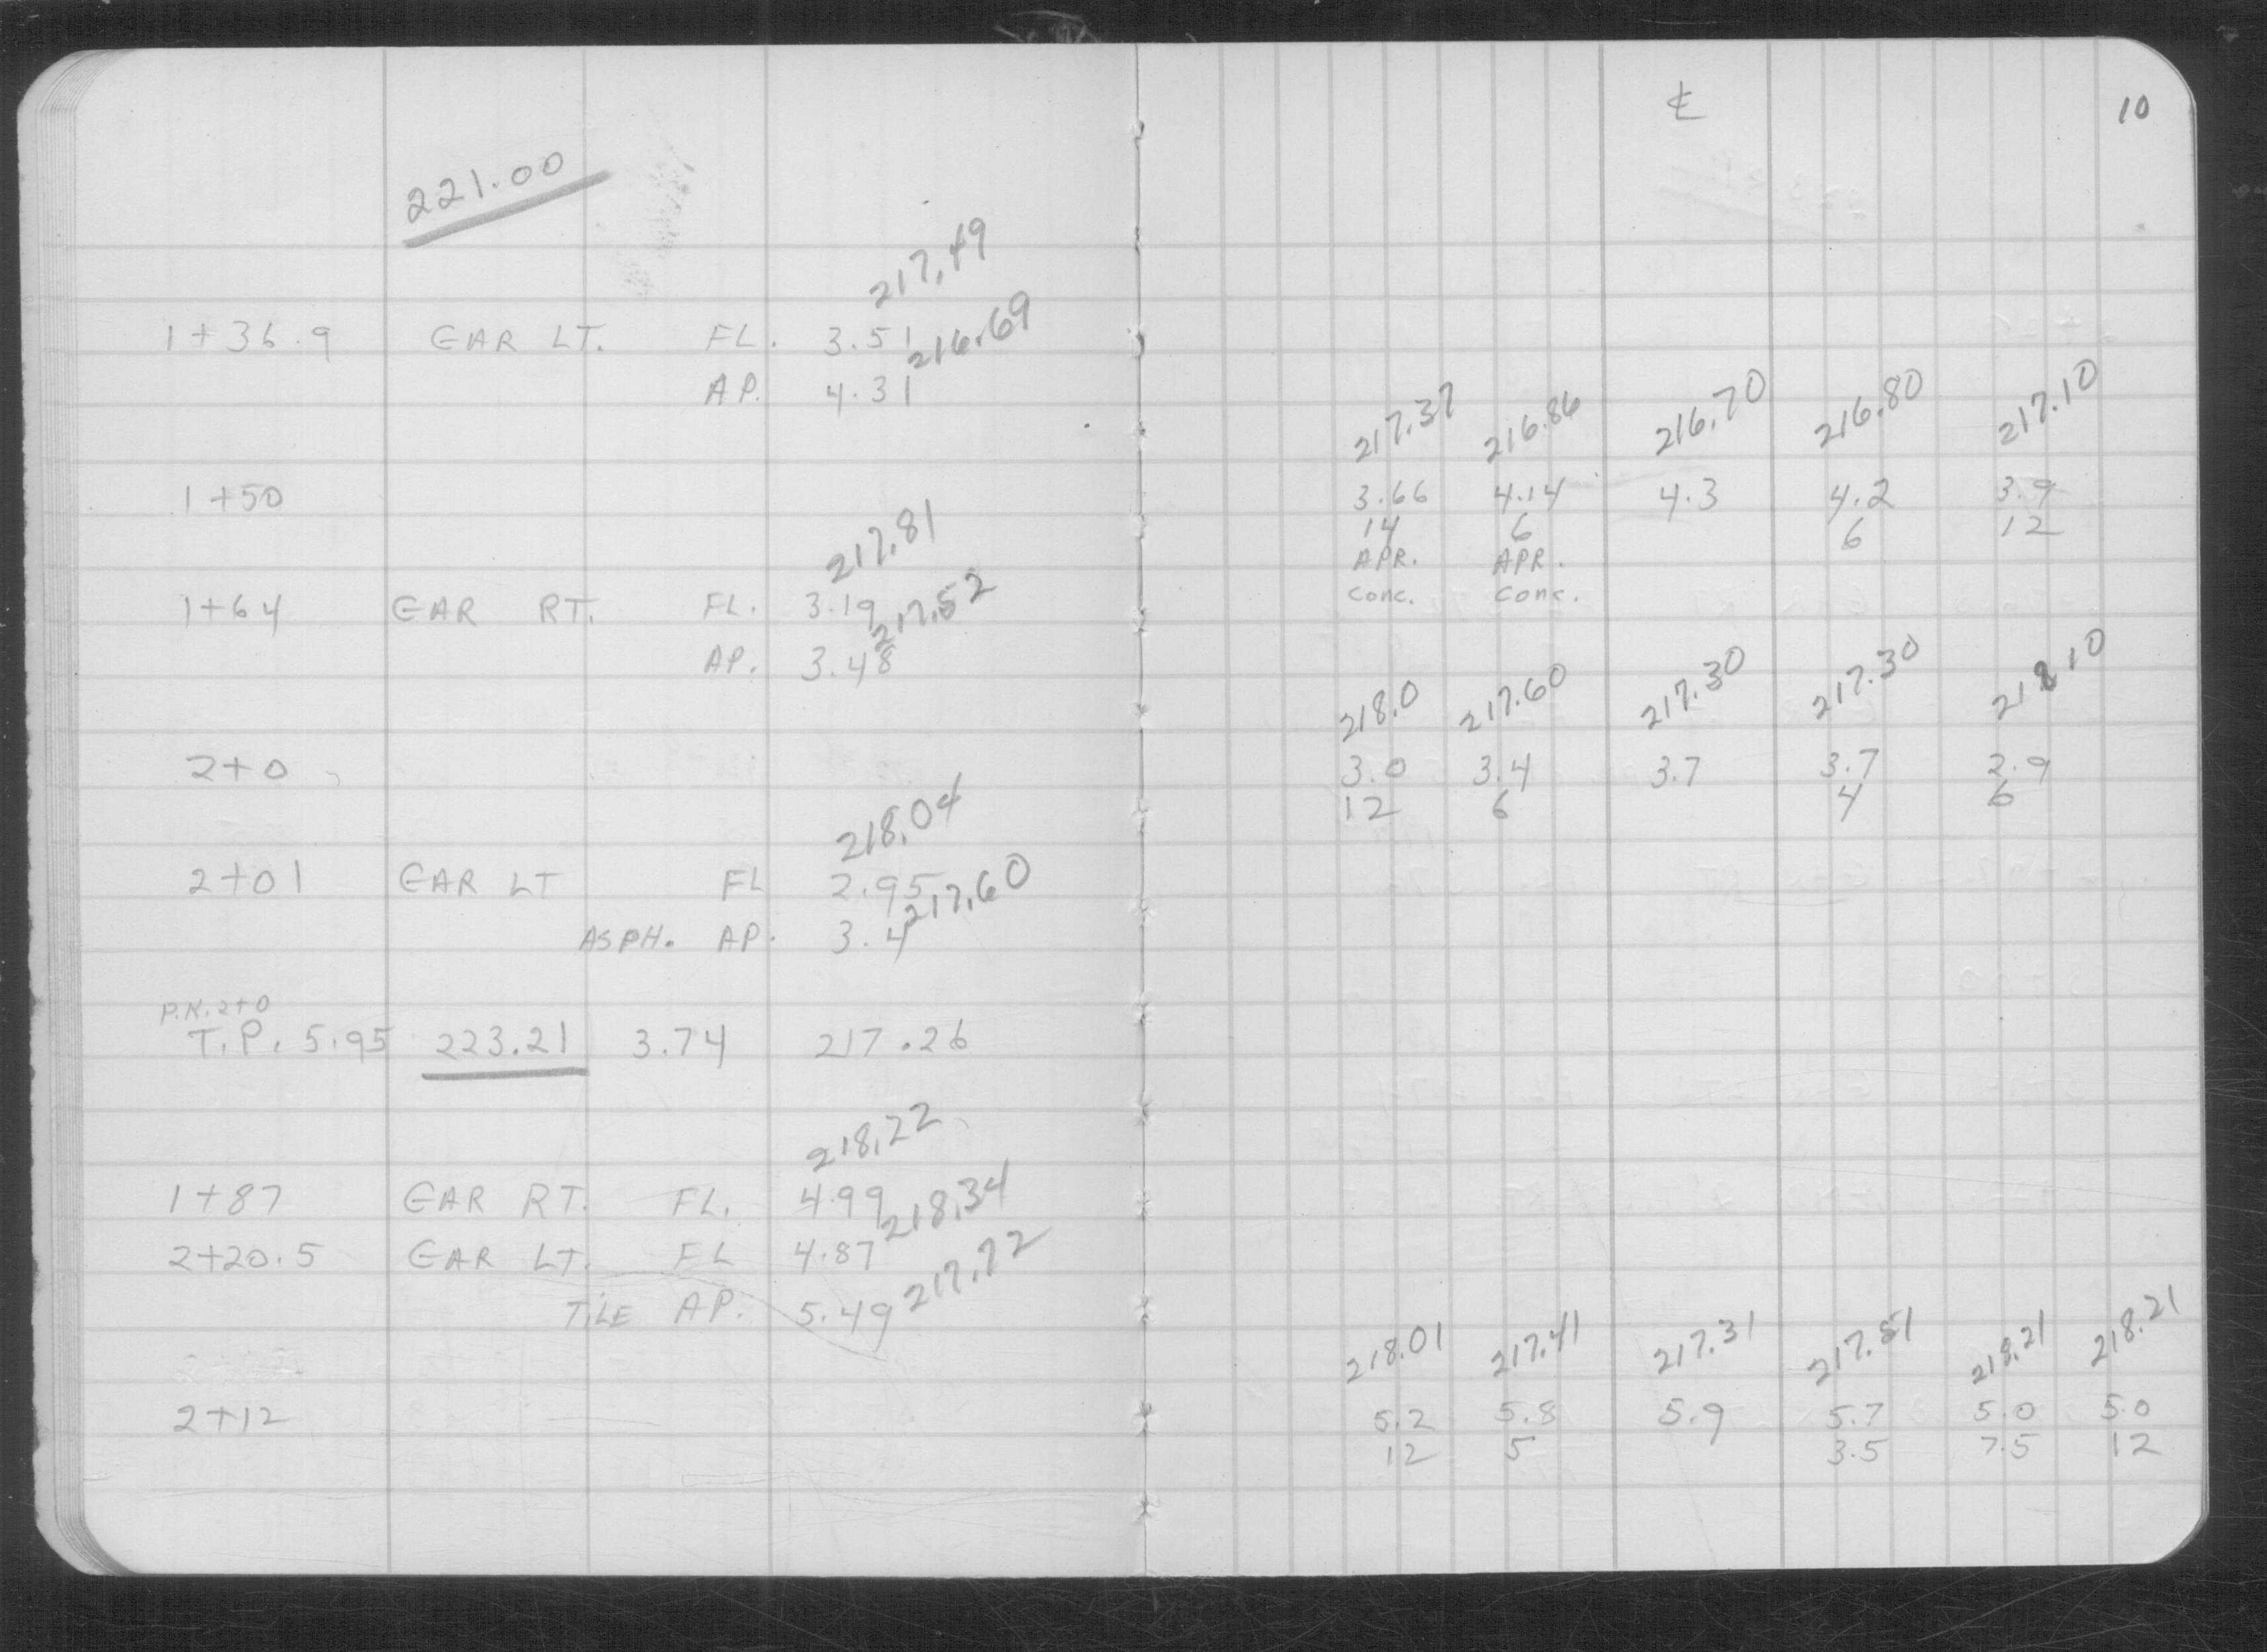 ℄ 10
221.00
217.49
1+36.9 GAR LT. FL. 3.51
216.69
AP. 4.31
217.37 216.86 216.70 216.80 217.10
1+50 3.66 4.14 4.3 4.2 3.9
14 6 6 12
APR. APR.
Conc. Conc.
217.81
1+64 GAR RT. FL. 3.19
217.52
AP. 3.48
218.0 217.60 217.30 217.30 218.10
2+0 3.0 3.4 3.7 3.7 2.9
12 6 4 6
218.04
2+01 GAR LT FL 2.95
217.60
ASPH. AP. 3.4
P.K. 2+0
T.P. 5.95 223.21 3.74 217.26
218.22
1+87 GAR RT. FL. 4.99
218.34
2+20.5 GAR LT. FL 4.87
TILE AP. 5.49 217.72
218.01 217.41 217.31 217.51 218.21 218.21
2+12 5.2 5.8 5.9 5.7 5.0 5.0
12 5 3.5 7.5 12